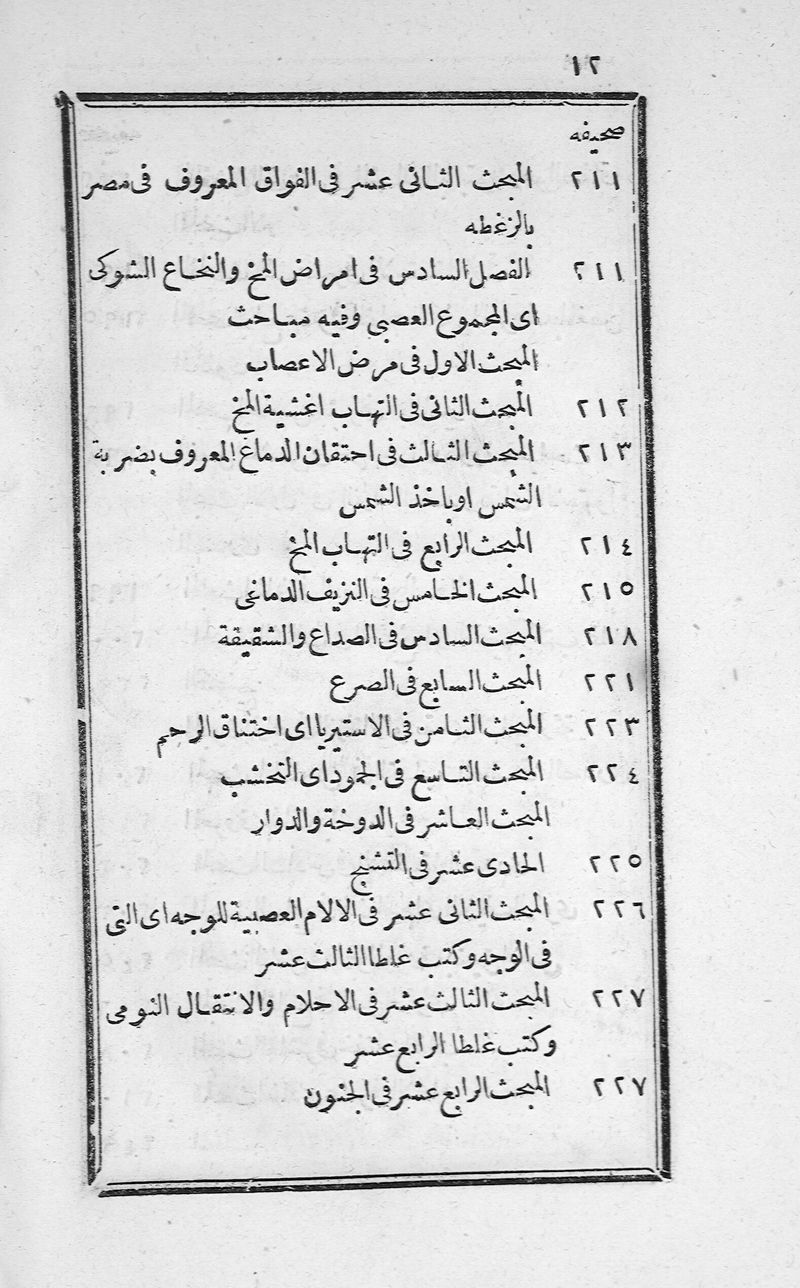 ١٢
صحيفه
٢١١ المبحث الثانى عشر فى الفواق المعروف فى مصر
بالزغطه
٢١١ الفصل السادس فى امراض المخ والنخاع الشوكى
اى المجموع العصبى وفيه مباحث
المبحث الاول فى مرض الاعصاب
٢١٢ المبحث الثانى فى التهاب اغشية المخ
٢١٣ المبحث الثالث فى احتقان الدماغ المعروف بضربة
الشمس او باخذ الشمس
٢١٤ المبحث الرابع فى التهاب المخ
٢١٥ المبحث الخامس فى النزيف الدماغى
٢١٨ المبحث السادس فى الصداع والشقيقة
٢٢١ المبحث السابع فى الصرع
٢٢٣ المبحث الثامن فى الاستيريا اى اختناق الرحم
٢٢٤ المبحث التاسع فى الجمود اى التخشب
المبحث العاشر فى الدوخة والدوار
٢٢٥ الحادى عشر فى التشنج
٢٢٦ المبحث الثانى عشر فى الالام العصبية للوجه اى التى
فى الوجه وكتب غلطا الثالث عشر
٢٢٧ المبحث الثالث عشر فى الاحلام والانتقال النومى
وكتب غلطا الرابع عشر
٢٢٧ المبحث الرابع عشر فى الجنون